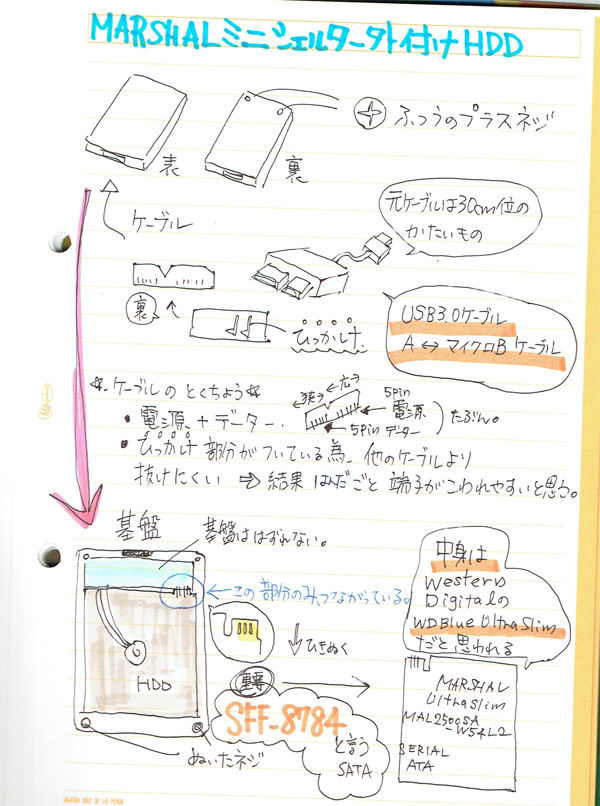 MARSHALミニシェルター外付けHDD
表
裏
ふつうのプラスネジ
ケーブル
元ケーブルは30cm位の
かたいもの
裏
ひっかけ
USB3.0ケーブル
A ↔ マイクロB ケーブル
☆ケーブルのとくちょう☆
・電源+データー.
←狭→
←広→
5pin
電源
5pin データー
たぶん。
・ひっかけ部分がついている為、他のケーブルより
抜けにくい ⇒ 結果 はんだごと端子がこわれやすいと思う。
基盤
基盤ははずれない。
←この部分のみつながっている。
↓ひきぬく
HDD
ぬいたネジ
重要
SFF-8784
と言う
SATA
中身は
Western
Digitalの
WDBlue UltraSlim
だと思われる
MARSHAL
UltraSlim
MAL2500SA
-W54L2
SERIAL
ATA
AGATHA RUIZ DE LA PRADA